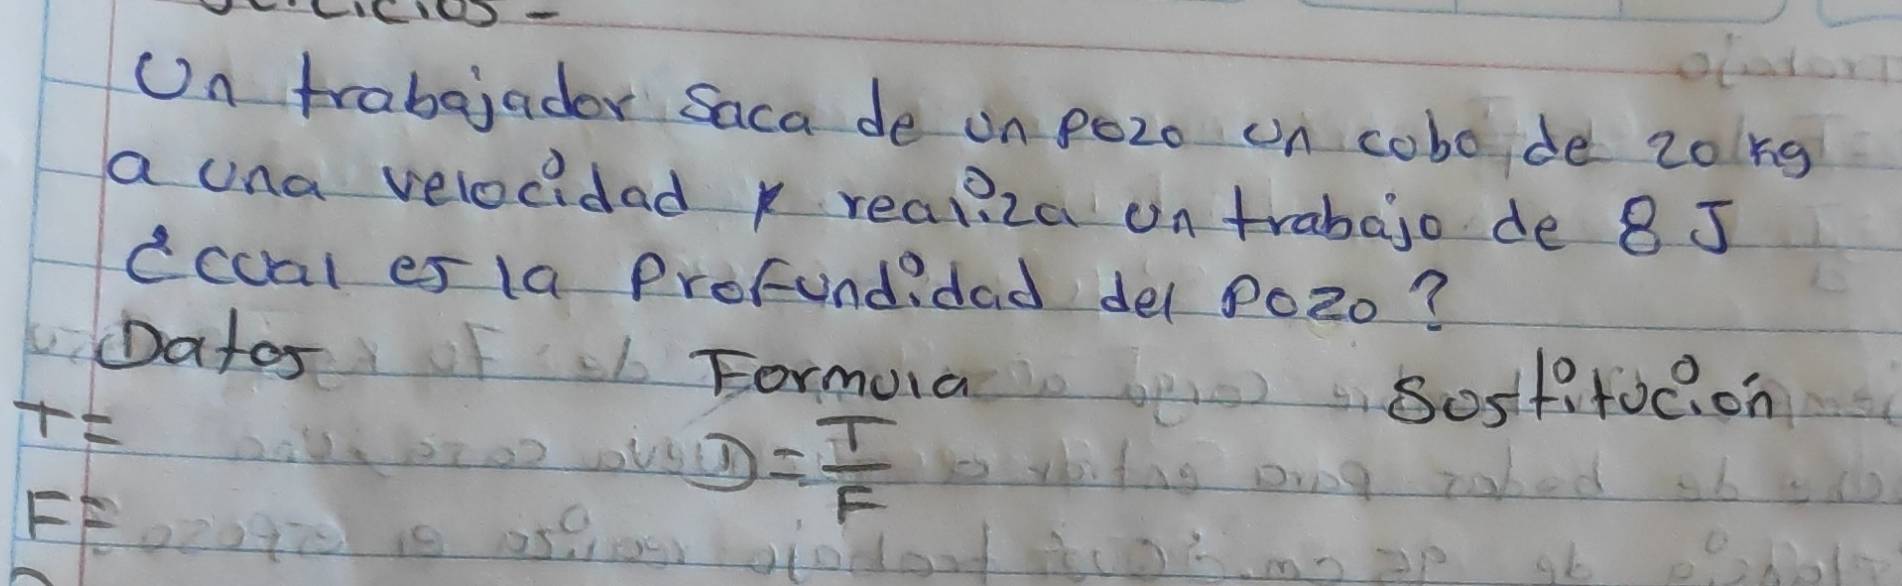 Un trabajador saca de un pozo un cobo de 20 kg
a una velocidad y realiza un trabajo de 8 J
¿cual es la Profundidad del pozo?
Datos Formula Sostitución
T= D = T/F
F=